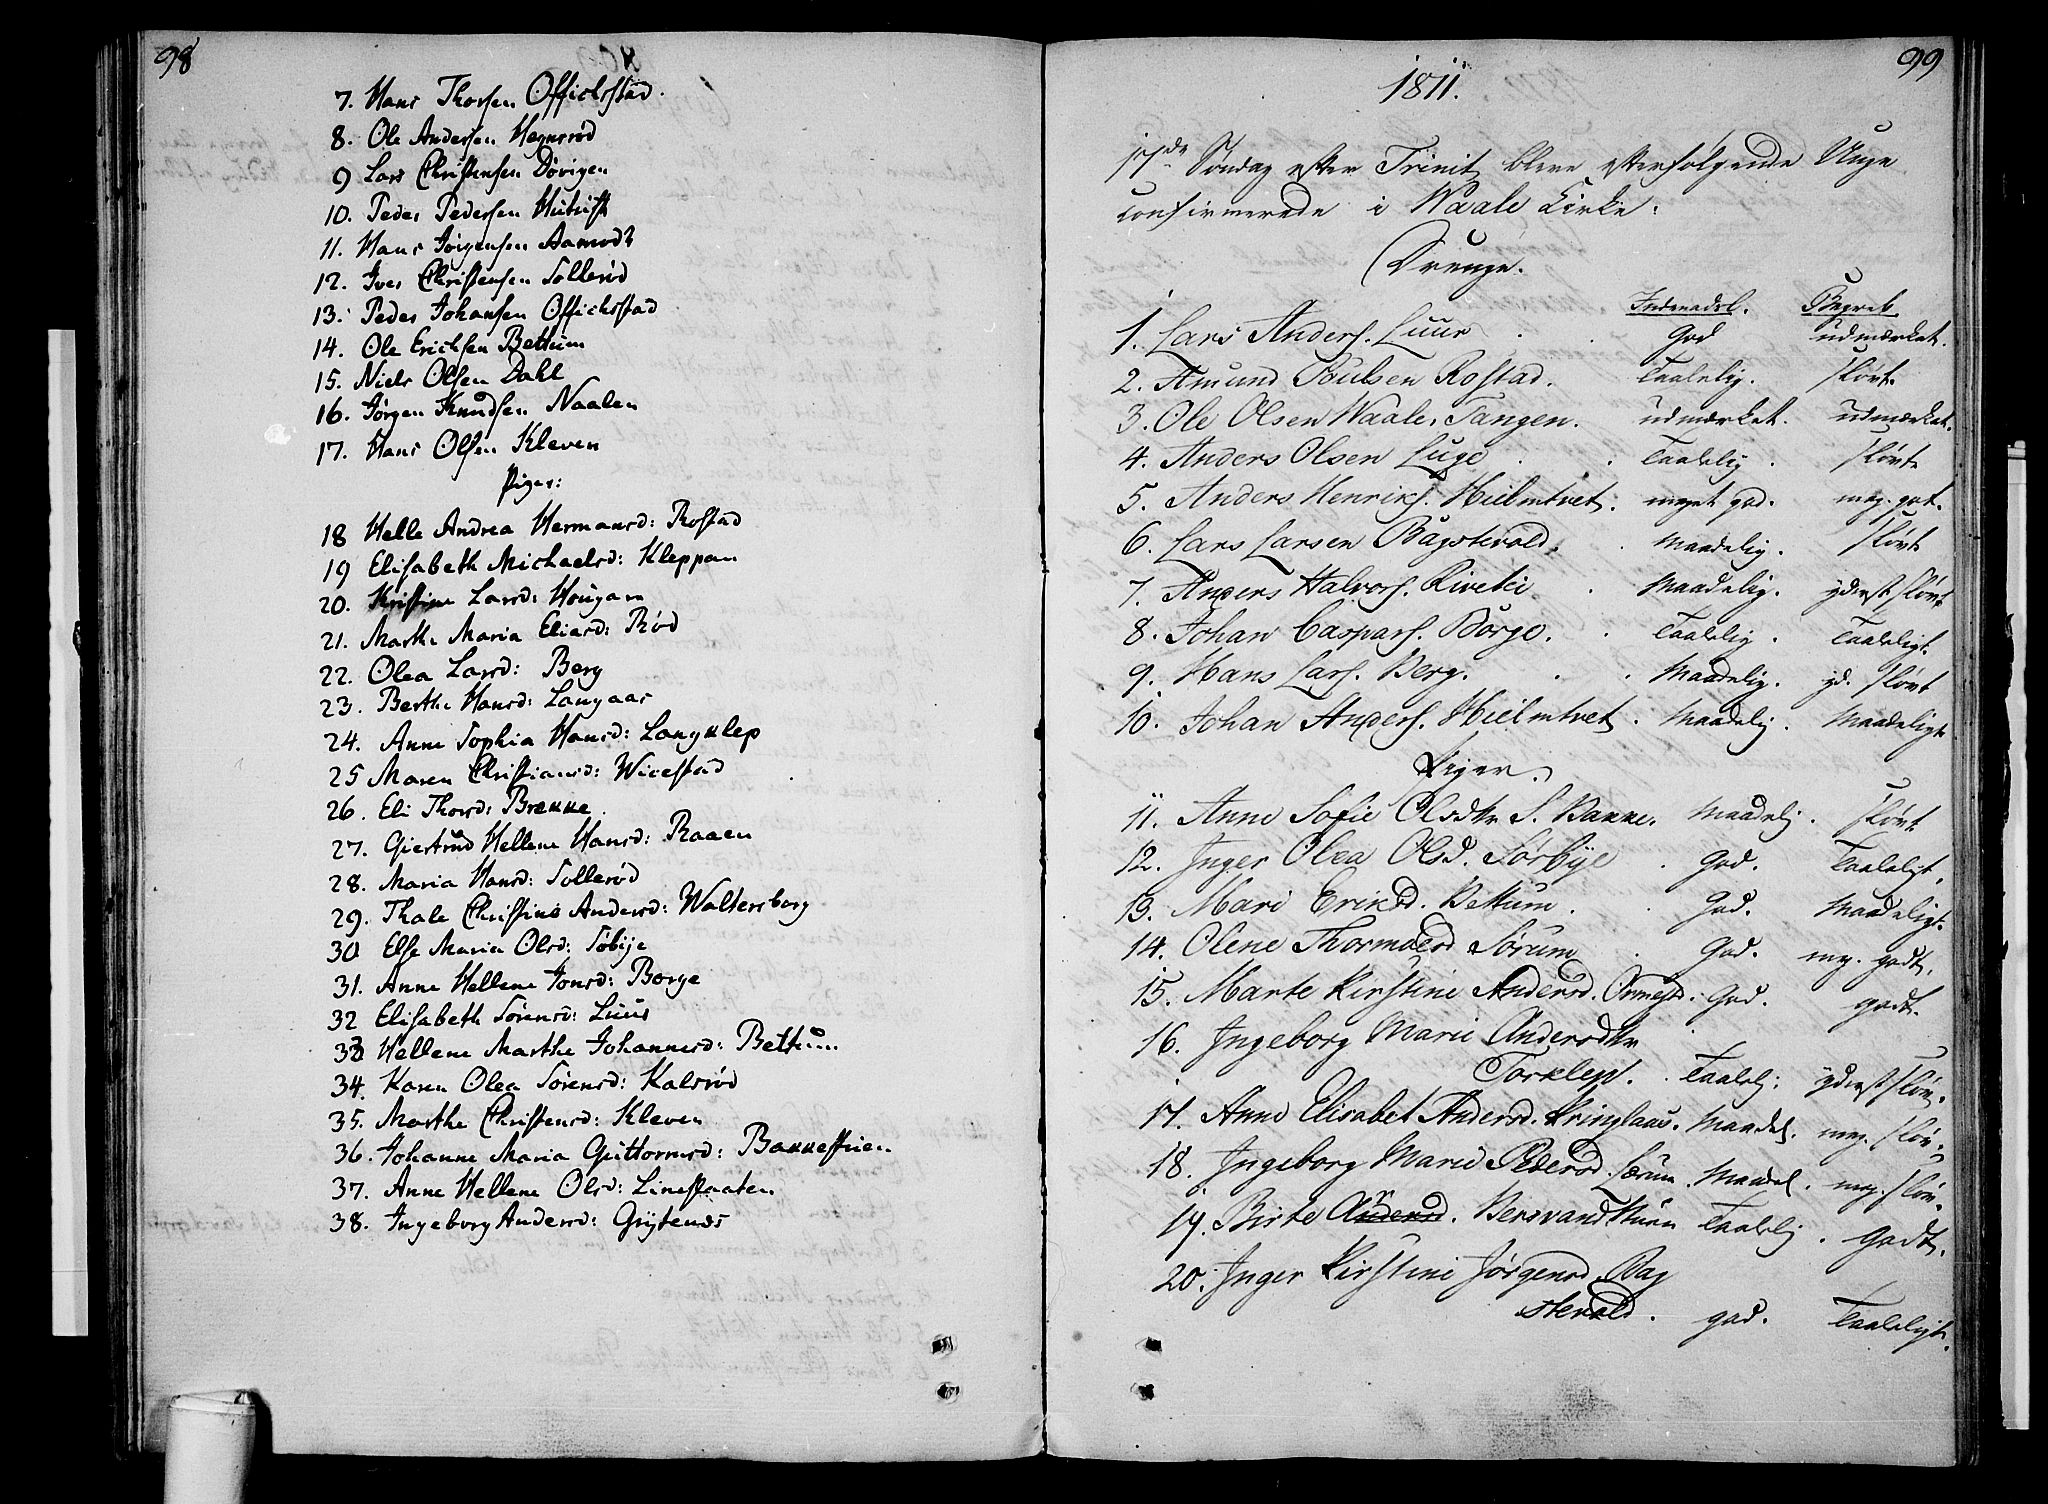 98
7. Hans Thorsen Offichstad.
8. Ole Andersen Hegnerød
9 Lars Christensen Dørigen
10. Peder Pedersen Hutuft
11. Hans Jørgensen Aamodt
12. Iver Christensen Sollerød
13. Peder Johansen Offichstad
14. Ole Erichsen Bettum
15. Niels Olsen Dahl
16. Jørgen Knudsen Naalen
17. Hans Olsen Kleven
Piger:
18 Helle Andrea Hermansd: Rostad
19 Elisabeth Michaelsd: Kleppan
20. Kristine Larsd: Hougan
21. Marthe Maria Eliasd: Rød
22. Olea Larsd: Berg
23. Berthe Hansd: Langaar
24. Anne Sophia Hansd: Langklep
25 Maren Christiansd: Wicestad
26. Eli Thorsd: Brekke
27. Giertrud Hellene Hansd: Raaen
28. Maria Hansd: Sollerød
29. Thale Christine Andersd: Waltersborg
30 Else Maria Olsd: Søbije
31. Anne Hellene Jonsd: Borge
32 Elisabeth Sørensd: Luur
33 Hellene Marthe Johannesd: Bettum
34. Karen Olea Sørensd: Kalsrød
35. Marthe Christensd: Kleven
36. Johanne Maria Guttormsd: Bakkestuen
37. Anne Hellene Olsd: Linestaaten
38. Ingeborg Andersd: Grytenes
99
1811.
17de Søndag efter Trinit bleve efterfølgende Unge
confirmerede i Waale Kirke:
Drenge.
Indenadsl. Begreb.
1. Lars Anders. Luur . . God udmærket.
2. Amund Poulsen Rostad. Taalelig. sløvt.
3. Ole Olsen Waale, Tangen. udmærket. udmærket.
4. Anders Olsen Luge . . Taalelig . sløvt
5. Anders Henriks. Hielmtvet. meget god. meg. got.
6. Lars Larsen Bagstevold. . Maadelig. sløvt
7. Anders Halvors. Rivelei . Maadelig. yderst sløvt
8. Johan Caspars. Borge. . Taalelig . Taaleligt.
9. Hans Lars. Berg. . . Maadelig. yd. sløvt
10. Johan Anders. Hielmtvet . Maadelig . Maadeligt
Piger.
11. Anne Sofie Olsdtr S. Bakke. Maadelj . sløvt
12. Inger Olea Olsd. Sørbye . God. Taaleligt.
13. Mari Eriksd. Bettum . . God. Maadeligt.
14. Olene Thormodsd Sørum . God. meg. godt.
15. Marte Kirstine Andersd. Ormestd. God. godt.
16. Ingeborg Marie Andersdtr
Torklep. . Taalelj. yderst sløv.
17. Anne Elisabet Andersd. Kringlaas. Maadel. meg. sløv.
18. Ingeborg Marie Pedersd. Særum . Maadel . meg. sløv.
19. Birte Andersd. Bersvand Stuen Taalelj . Godt.
20. Inger Kirstine Jørgensd. Bag
stevold . god. Taaleligt.